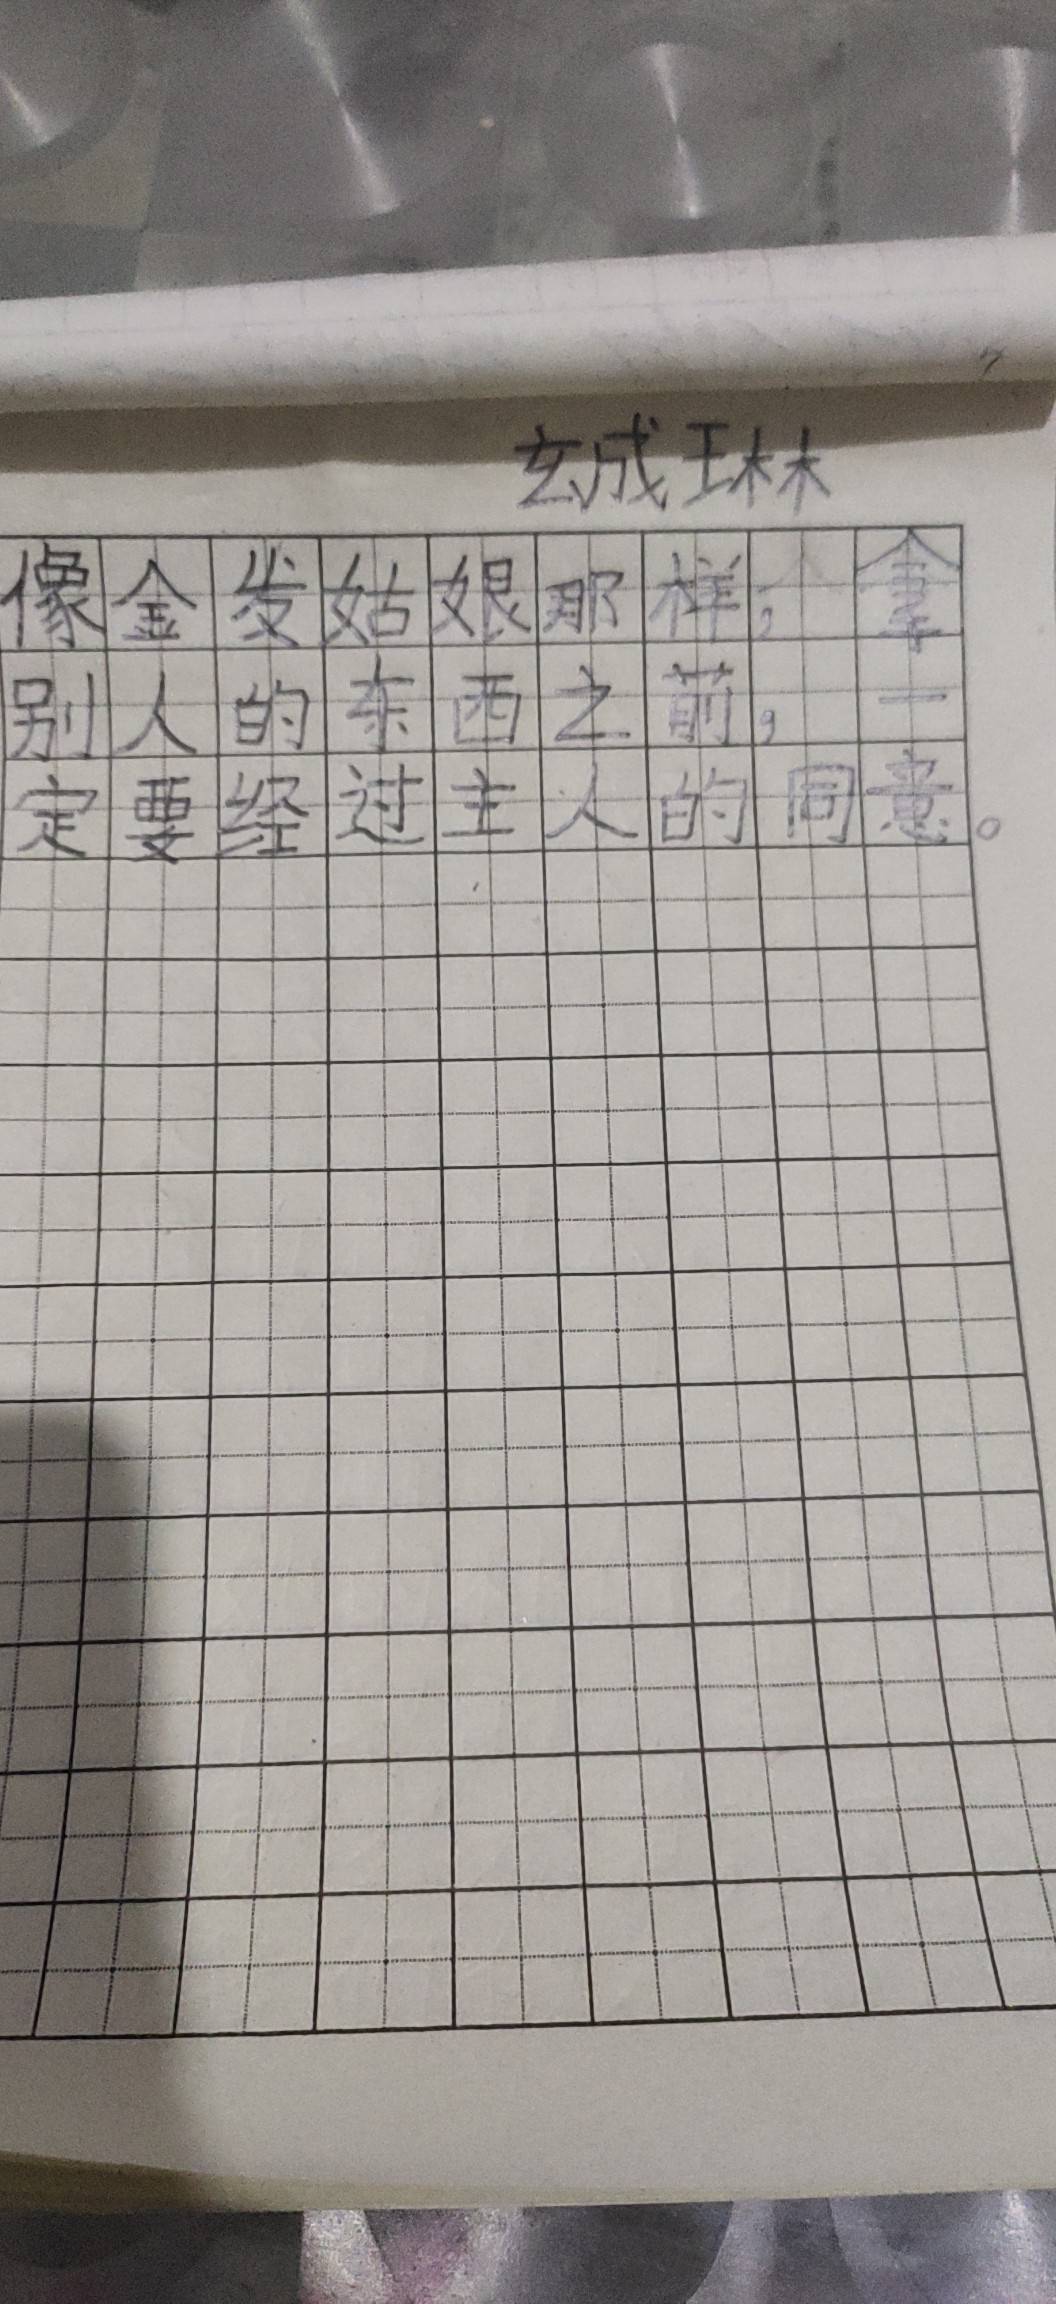 玄成琳
像金发姑娘那样，拿
别人的东西之前，一
定要经过主人的同意。